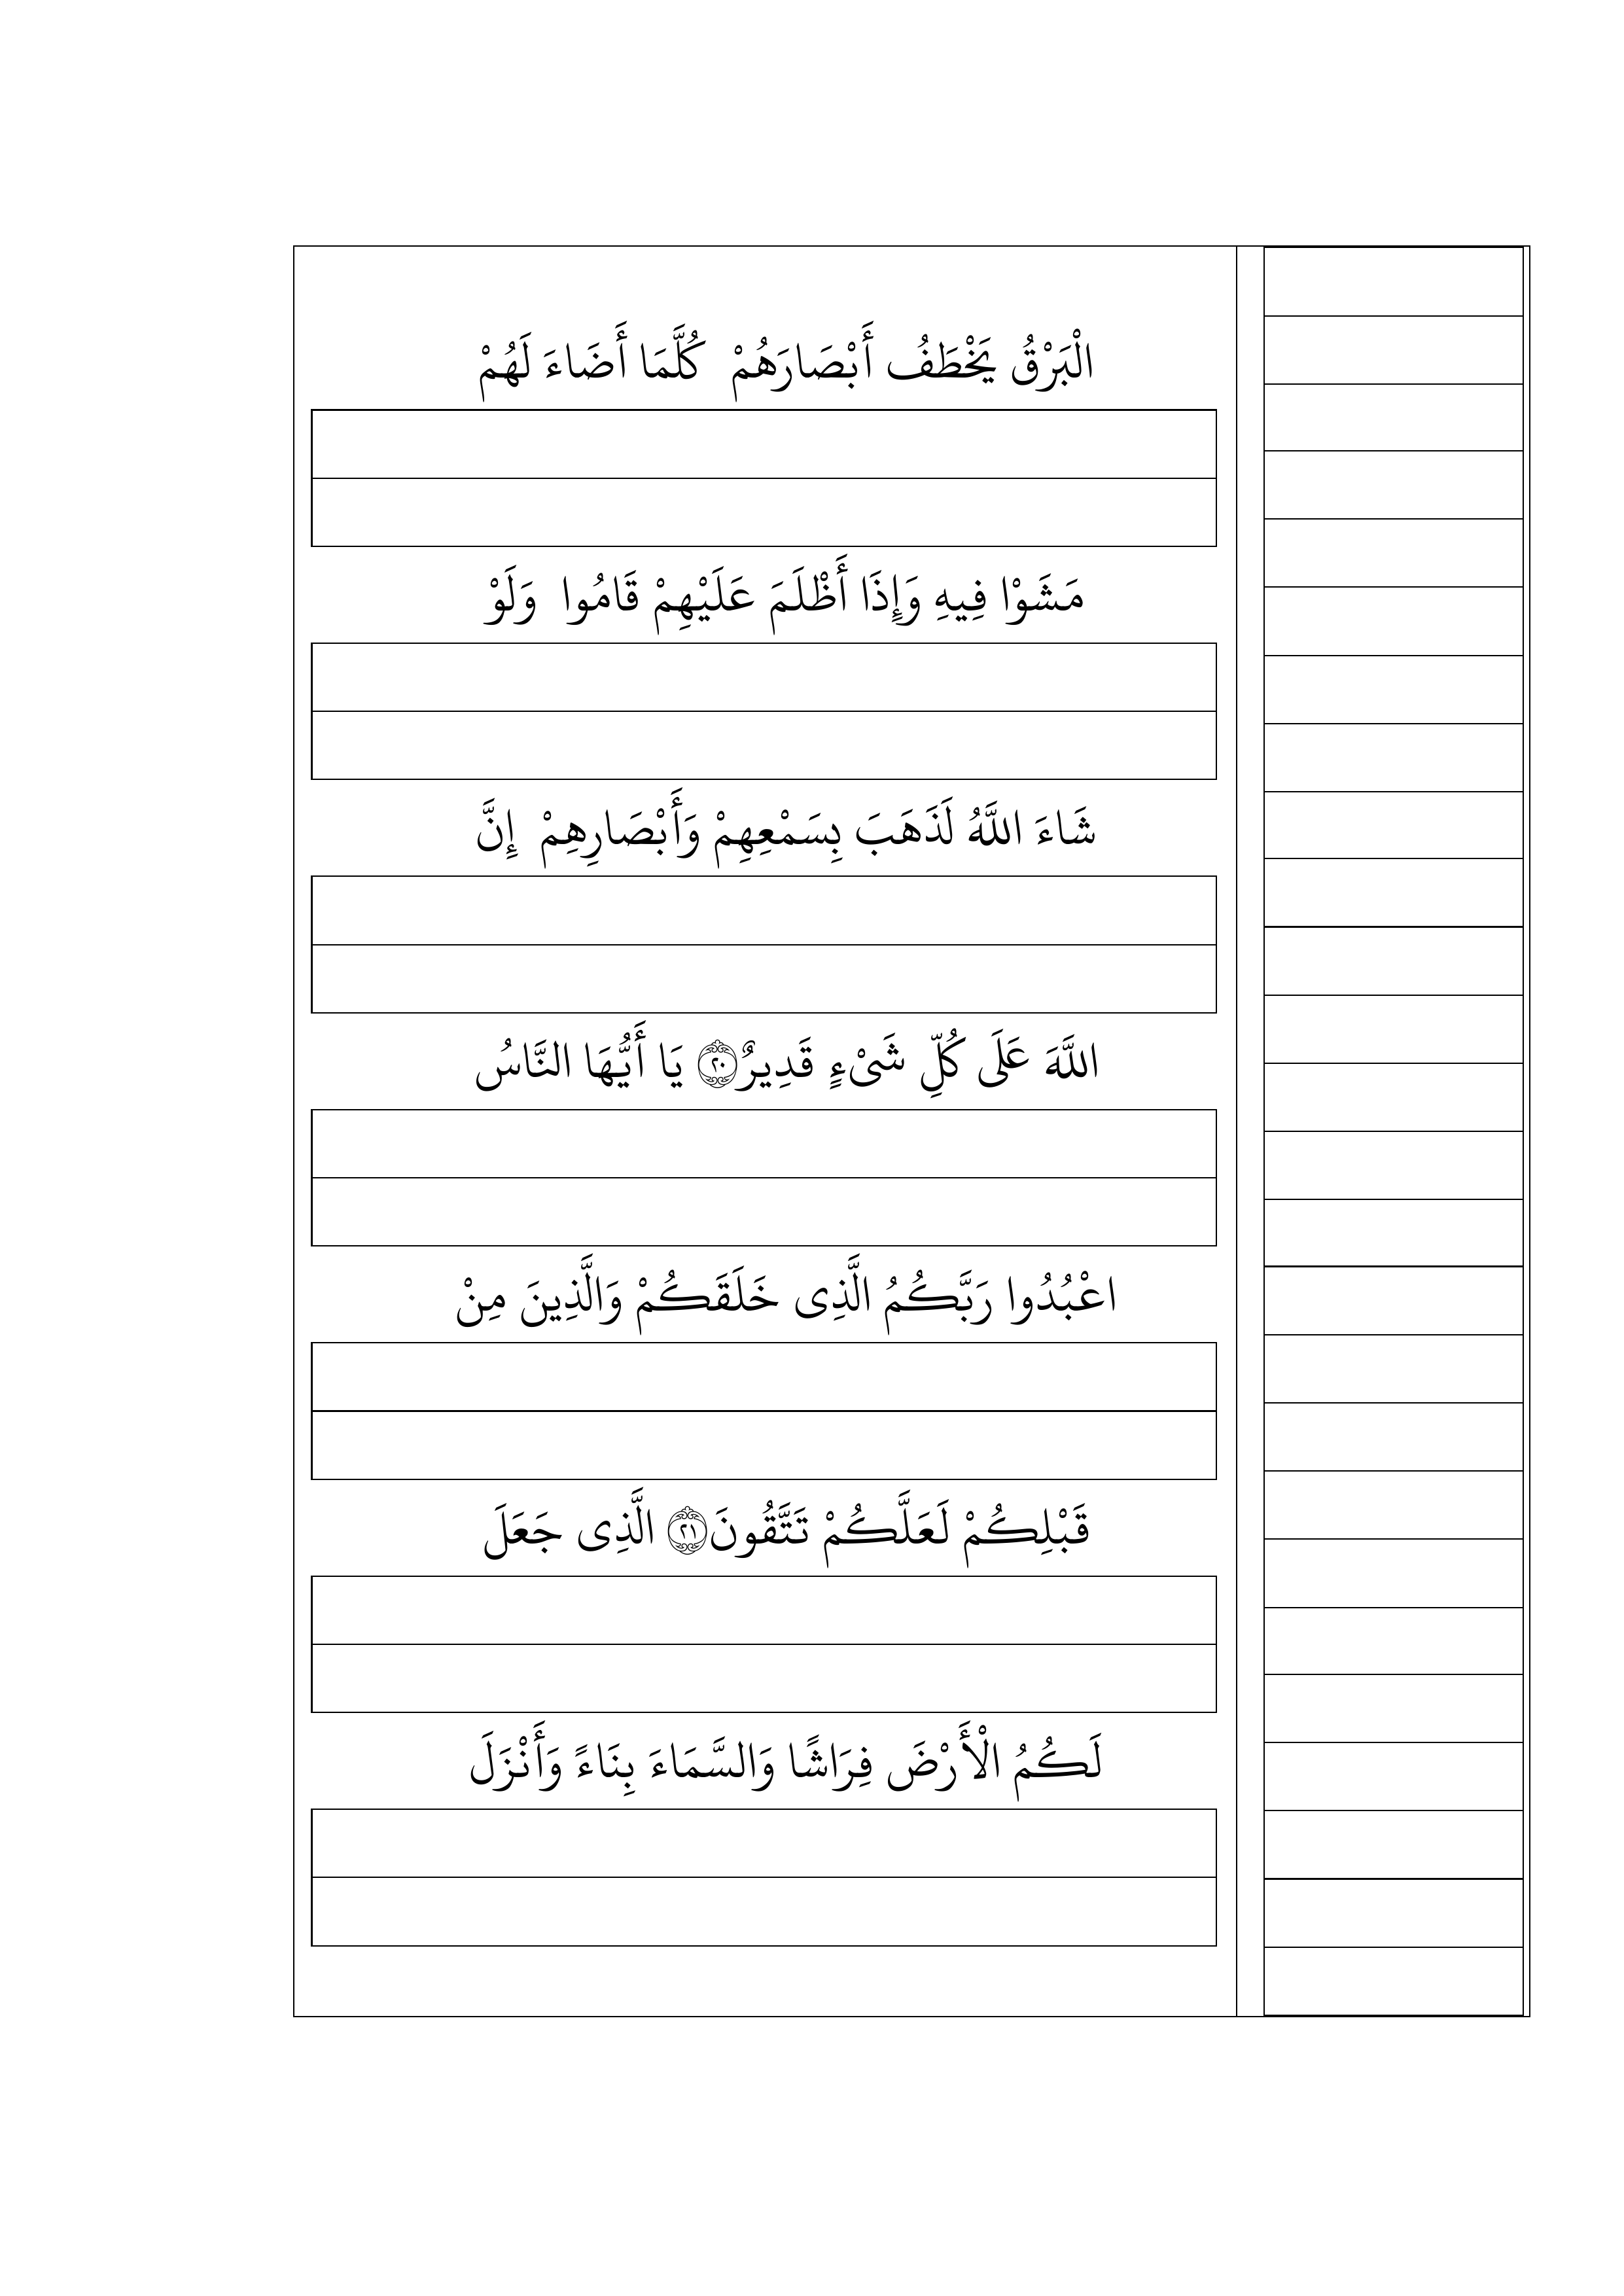 الْبَرْقُ يَخْطَفُ أَبْصَارَهُمْ كُلَّمَا أَضَاءَ لَهُمْ
مَشَوْا فِيهِ وَإِذَا أَظْلَمَ عَلَيْهِمْ قَامُوا وَلَوْ
شَاءَ اللَّهُ لَذَهَبَ بِسَمْعِهِمْ وَأَبْصَارِهِمْ إِنَّ
اللَّهَ عَلَى كُلِّ شَىْءٍ قَدِيرٌ ۝٢٠ يَا أَيُّهَا النَّاسُ
اعْبُدُوا رَبَّكُمُ الَّذِى خَلَقَكُمْ وَالَّذِينَ مِنْ
قَبْلِكُمْ لَعَلَّكُمْ تَتَّقُونَ ۝٢١ الَّذِى جَعَلَ
لَكُمُ الْأَرْضَ فِرَاشًا وَالسَّمَاءَ بِنَاءً وَأَنْزَلَ